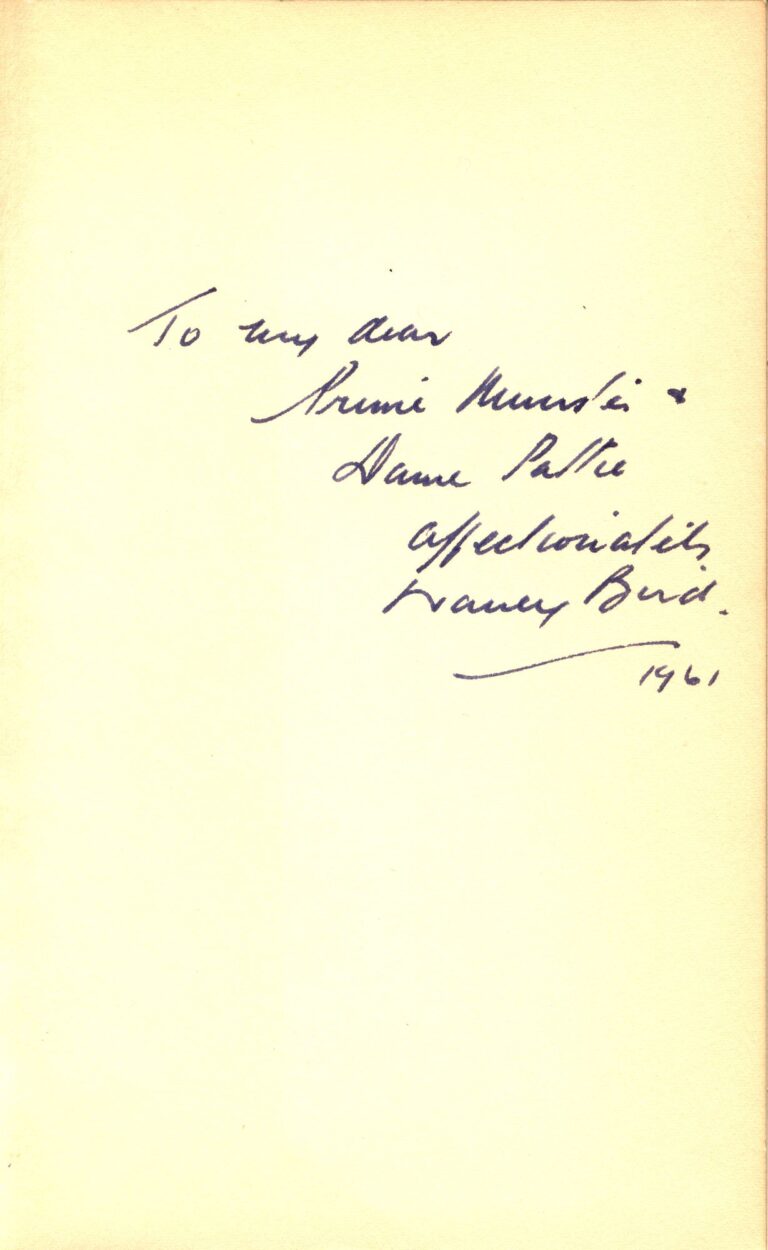 To my dear
Prime Minister &
Dame Pattie
affectionately
Nancy Bird.
1961